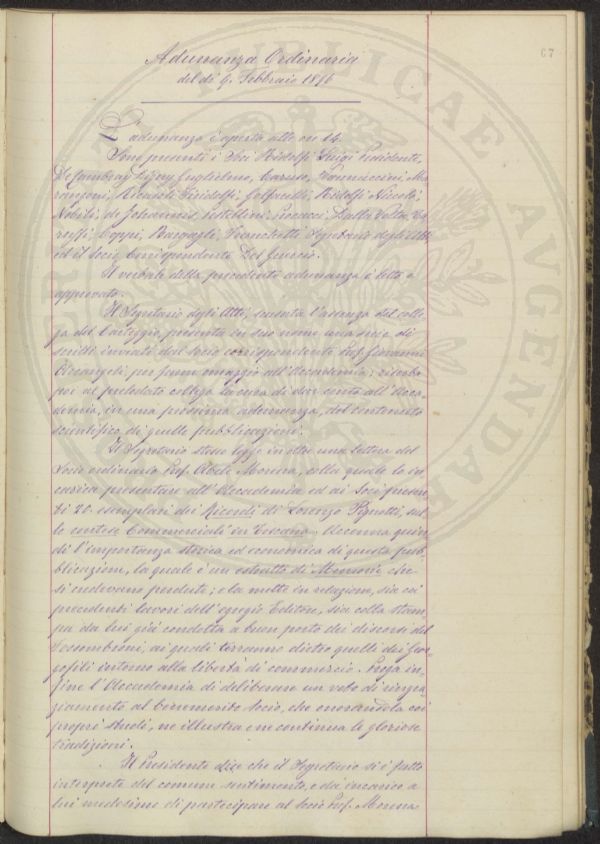 67
Adunanza Ordinaria
del dì 9. Febbraio 1896
L'adunanza è aperta alle ore 14.
Sono presenti i Soci Ridolfi Luigi Presidente,
De Cambray Digny Guglielmo, Caruso, Franceschini, Ma-
rangoni, Ricasoli Firidolfi, Golfarelli, Ridolfi Niccolò,
Nobili, de Johannis, Dalla Volta,
Coppi, Bargagli, Franchetti Segretario degli Atti
ed il socio corrispondente Del Guercio.
Il verbale della precedente adunanza è letto e
approvato.
Il Segretario degli Atti, scusata l'assenza del colle-
ga del Carteggio, presenta in suo nome una serie di
scritti inviati dal socio corrispondente Prof. Giovanni
Arcangeli per farne omaggio all'Accademia; riserba
poi al prelodato collega la cura di dar conto all'Acca-
demia, in una prossima adunanza, del contenuto
scientifico di quelle pubblicazioni.
Il Segretario stesso legge inoltre una lettera del
Socio ordinario Prof. Abele Morena, colla quale lo in-
carica presentare all'Accademia ed ai Soci presen-
ti 20 esemplari dei Ricordi di Lorenzo Pignotti, sul-
le contese Commerciali in Toscana. Accenna quin-
di l'importanza storica ed economica di questa pub-
blicazione, la quale è un estratto di Memorie che
si credevano perdute; e la mette in relazione, sia coi
precedenti lavori dell'egregio Editore, sia colla stam-
pa da lui già condotta a buon porto dei discorsi del
ai quali terranno dietro quelli dei Geor-
gofili intorno alla libertà di commercio. Prega in-
fine l'Accademia di deliberare un voto di ringra-
ziamento al benemerito Socio, che onorandola coi
proprj studi, ne illustra e ne continua le gloriose
tradizioni.
Il Presidente dice che il Segretario si è fatto
interprete del comune sentimento, e dà incarico a
lui medesimo di partecipare al Socio Prof. Morena